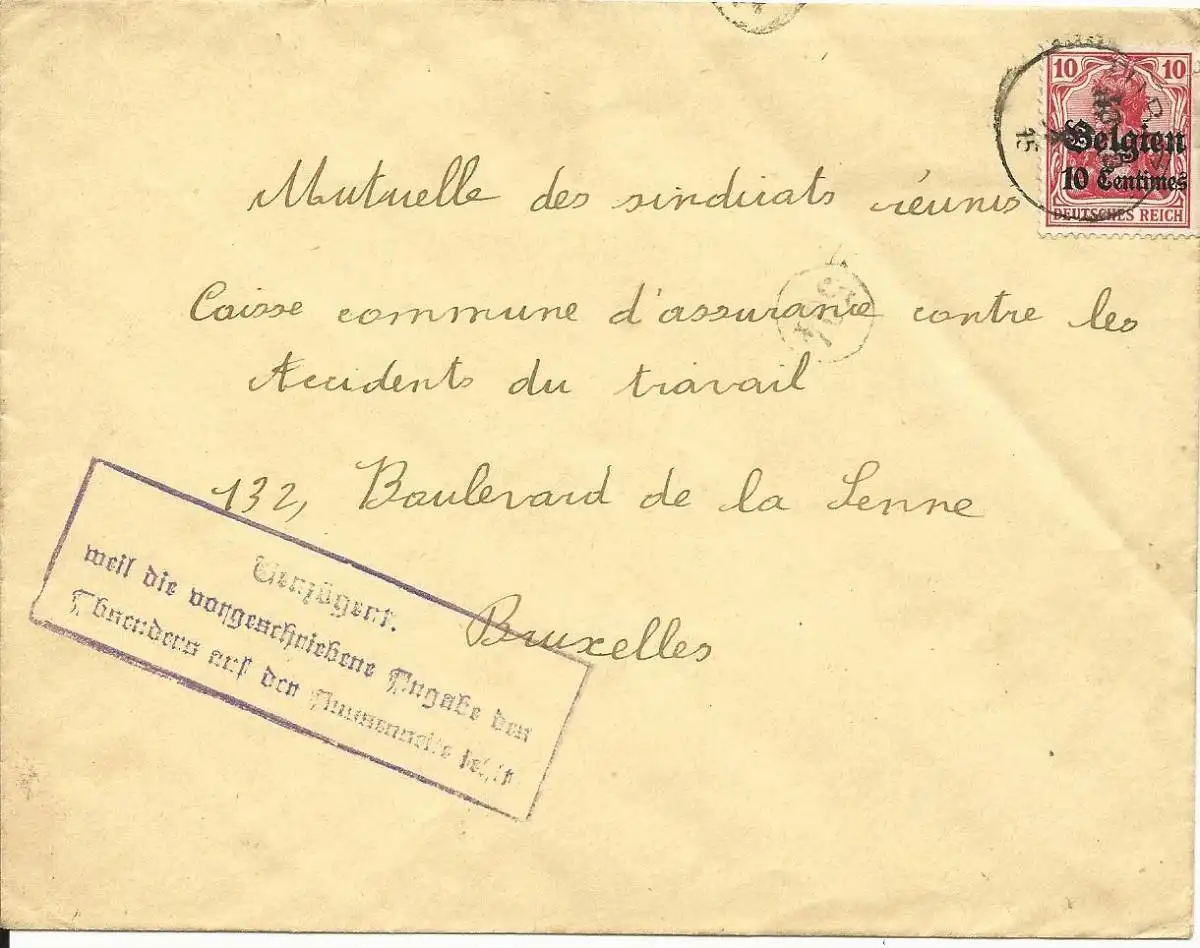 10 10
Belgien
10 Centimes
DEUTSCHES REICH
15
Mutuelle des sindicats réunis
Caisse commune d'assurance contre les
Accidents du travail
132, Boulevard de la Senne
Bruxelles
Verzögert,
weil die vorgeschriebene Angabe des
Absenders auf der fehlt